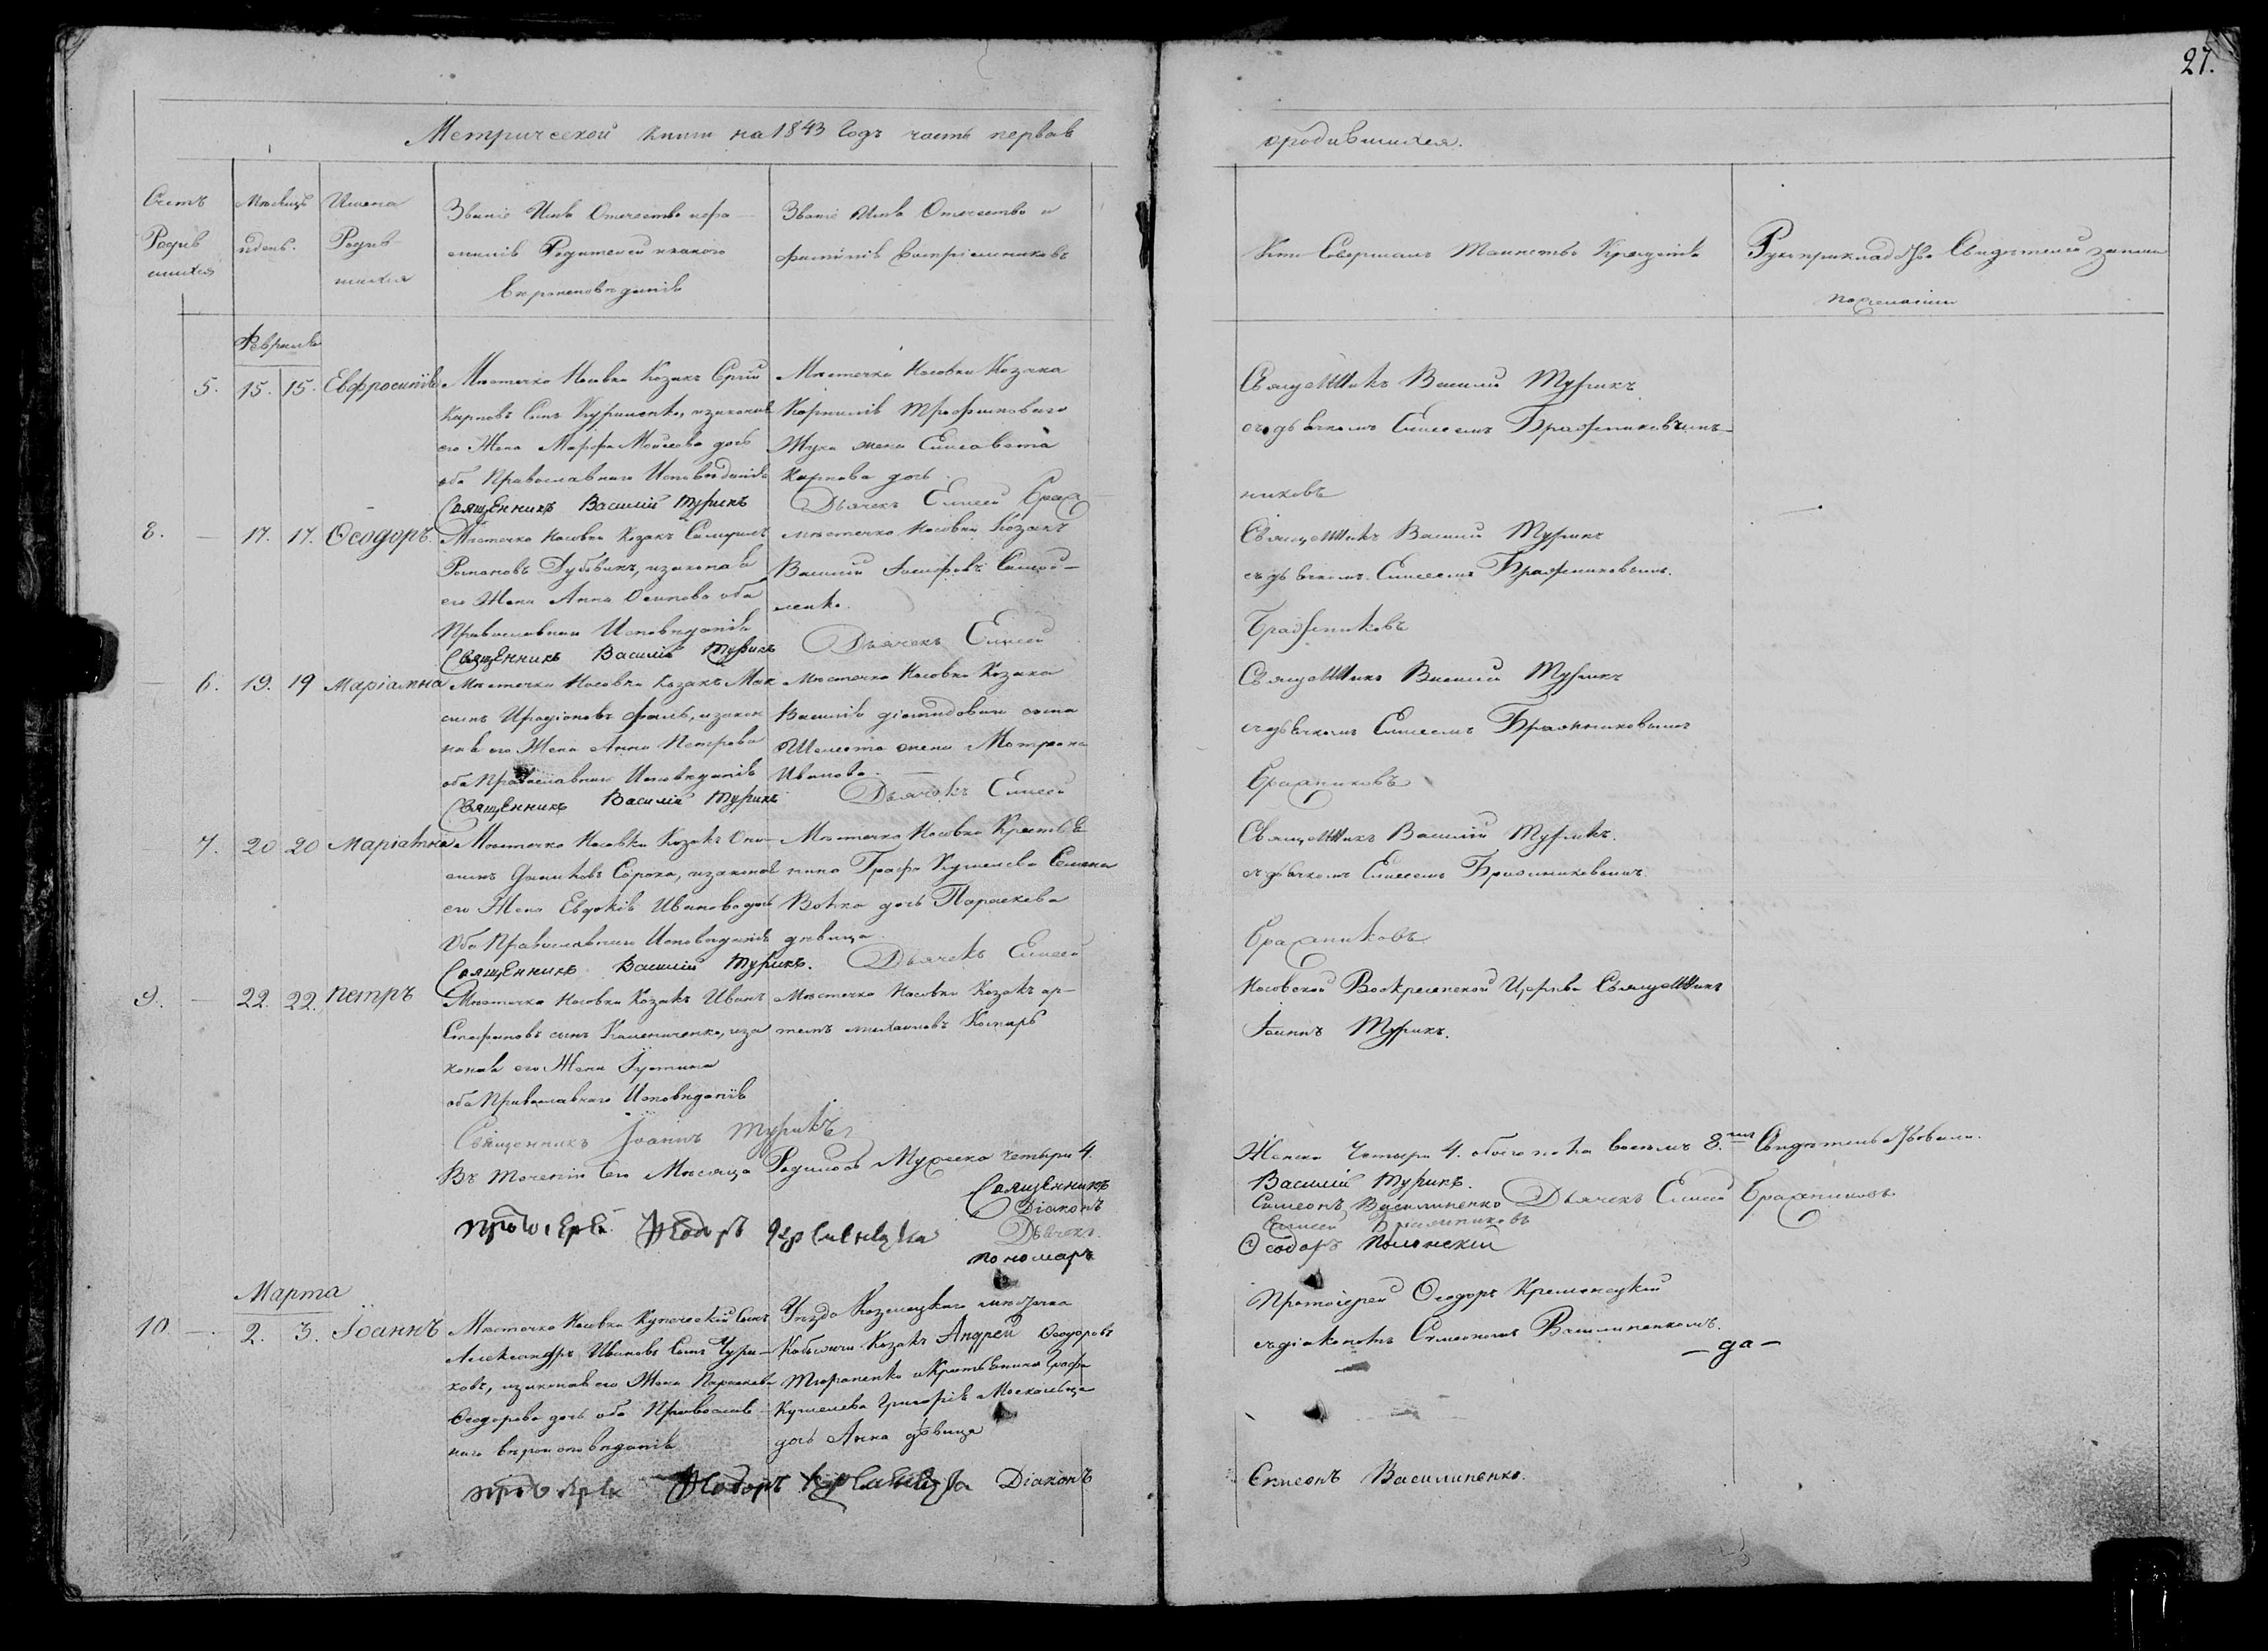 27.
Метрической книги на 1843 Годъ часть первая
о родившихся.
Счетъ Родившихся
Мѣсяцъ и день.
Имена Родившихся
Званіе Имя Отечество и фамилія Родителей и какого Вѣроисповѣданія
Званіе Имя Отечество и фамилія Воспріемниковъ
Кто Совершалъ Таинство Крещенія
Рукоприкладство Свидѣтелей записи по желанію
Февраля
5. 15. 15. Евфросинія
Мѣстечка Носовки Козакъ Сергій
Карповъ Сынъ и законная
его Жена Марфа Моисеева дочь
оба Православнаго Исповѣданія
Священникъ Василій Турикъ
Мѣстечка Носовки Козака
Корнилія Трофимоваго
Жука жена Елисавета
Карпова дочь.
Дьячекъ Елисей Браж
Священникъ Василій Турикъ
съ дьячкомъ Елисеемъ Бражниковымъ
никовъ
8. — 17. 17. Ѳеодоръ.
Мѣстечка Носовки Козакъ Самуилъ
Романовъ Дубовикъ, и законная
его Жена Анна Осипова оба
Православнаго Исповѣданія
Священникъ Василій Турикъ
Мѣстечка Носовки Козакъ
Василій Іосифовъ Самой-
ленко.
Дьячекъ Елисей
Священникъ Василій Турикъ
съ дьячкомъ Елисеемъ Бражниковымъ.
Бражниковъ
— 6. 19. 19 Маріамна
Мѣстечка Носовки Козакъ Мак
симъ Иродіоновъ и закон
ная его Жена Анна Петрова
оба Православнаго Исповѣданія
Священникъ Василій Турикъ
Мѣстечка Носовки Козака
Василія Діомидоваго сына
Шелеста жена Мотрона
Иванова.
Дьячекъ Елисей
Священникъ Василій Турикъ
съ дьячкомъ Елисеемъ Бражниковымъ
Бражниковъ
— 7. 20 20 Маріамна
Мѣстечка Носовки Козакъ Они-
симъ Сорока, и законная
его Жена Евдокія Иванова дочь
Оба Православнаго Исповѣданія
Священникъ Василій Турикъ.
Мѣстечка Носовки Крестья
нина Графа Кушелева Семена
Вовка дочь Параскева
дѣвица.
Дьячекъ Елисей
Священникъ Василій Турикъ.
съ дьячкомъ Елисеемъ Бражниковымъ
Бражниковъ
9. — 22. 22. Петръ
Мѣстечка Носовки Козакъ Иванъ
Стефановъ сынъ и за
конная его Жена Іустина
оба Православнаго Исповѣданія
Священникъ Іоаннъ Турикъ
Мѣстечка Носовки Козакъ Ар-
темъ Михайловъ
Носовской Воскресенской Церкви Священникъ
Іоаннъ Турикъ.
Въ теченіи сего Мѣсяца Родилось Мужеска четыри 4.
Женска Четыри 4. обоего пола восемь 8. Свидѣтельствовали.
Священникъ Василій Турикъ.
Діаконъ Симеонъ Василиненко Дьячекъ Елисей Бражниковъ
Дьячекъ Елисей Бражниковъ
Пономарь Ѳеодоръ Полонскій
Протоіерей Ѳеодоръ Кременецкій
Марта
10. — 2. 3. Іоаннъ
Мѣстечка Носовки Купеческій Сынъ
Александръ Ивановъ Сынъ Чури-
ковъ, и законная его Жена Параскева
Ѳеодорова дочь оба Православ-
наго вѣроисповѣданія
Уѣзда Козелецкаго мѣстечка
Кобыжчи Козакъ Андрей Ѳеодоровъ
и Крестьянина Графа
Кушелева Григорія Москальца
дочь Анна дѣвица
Протоіерей Ѳеодоръ Кременецкій
съ діакономъ Симеономъ Василиненкомъ.
— да —
Протоіерей Ѳеодоръ Кременецкій Діаконъ
Симеонъ Василиненко.